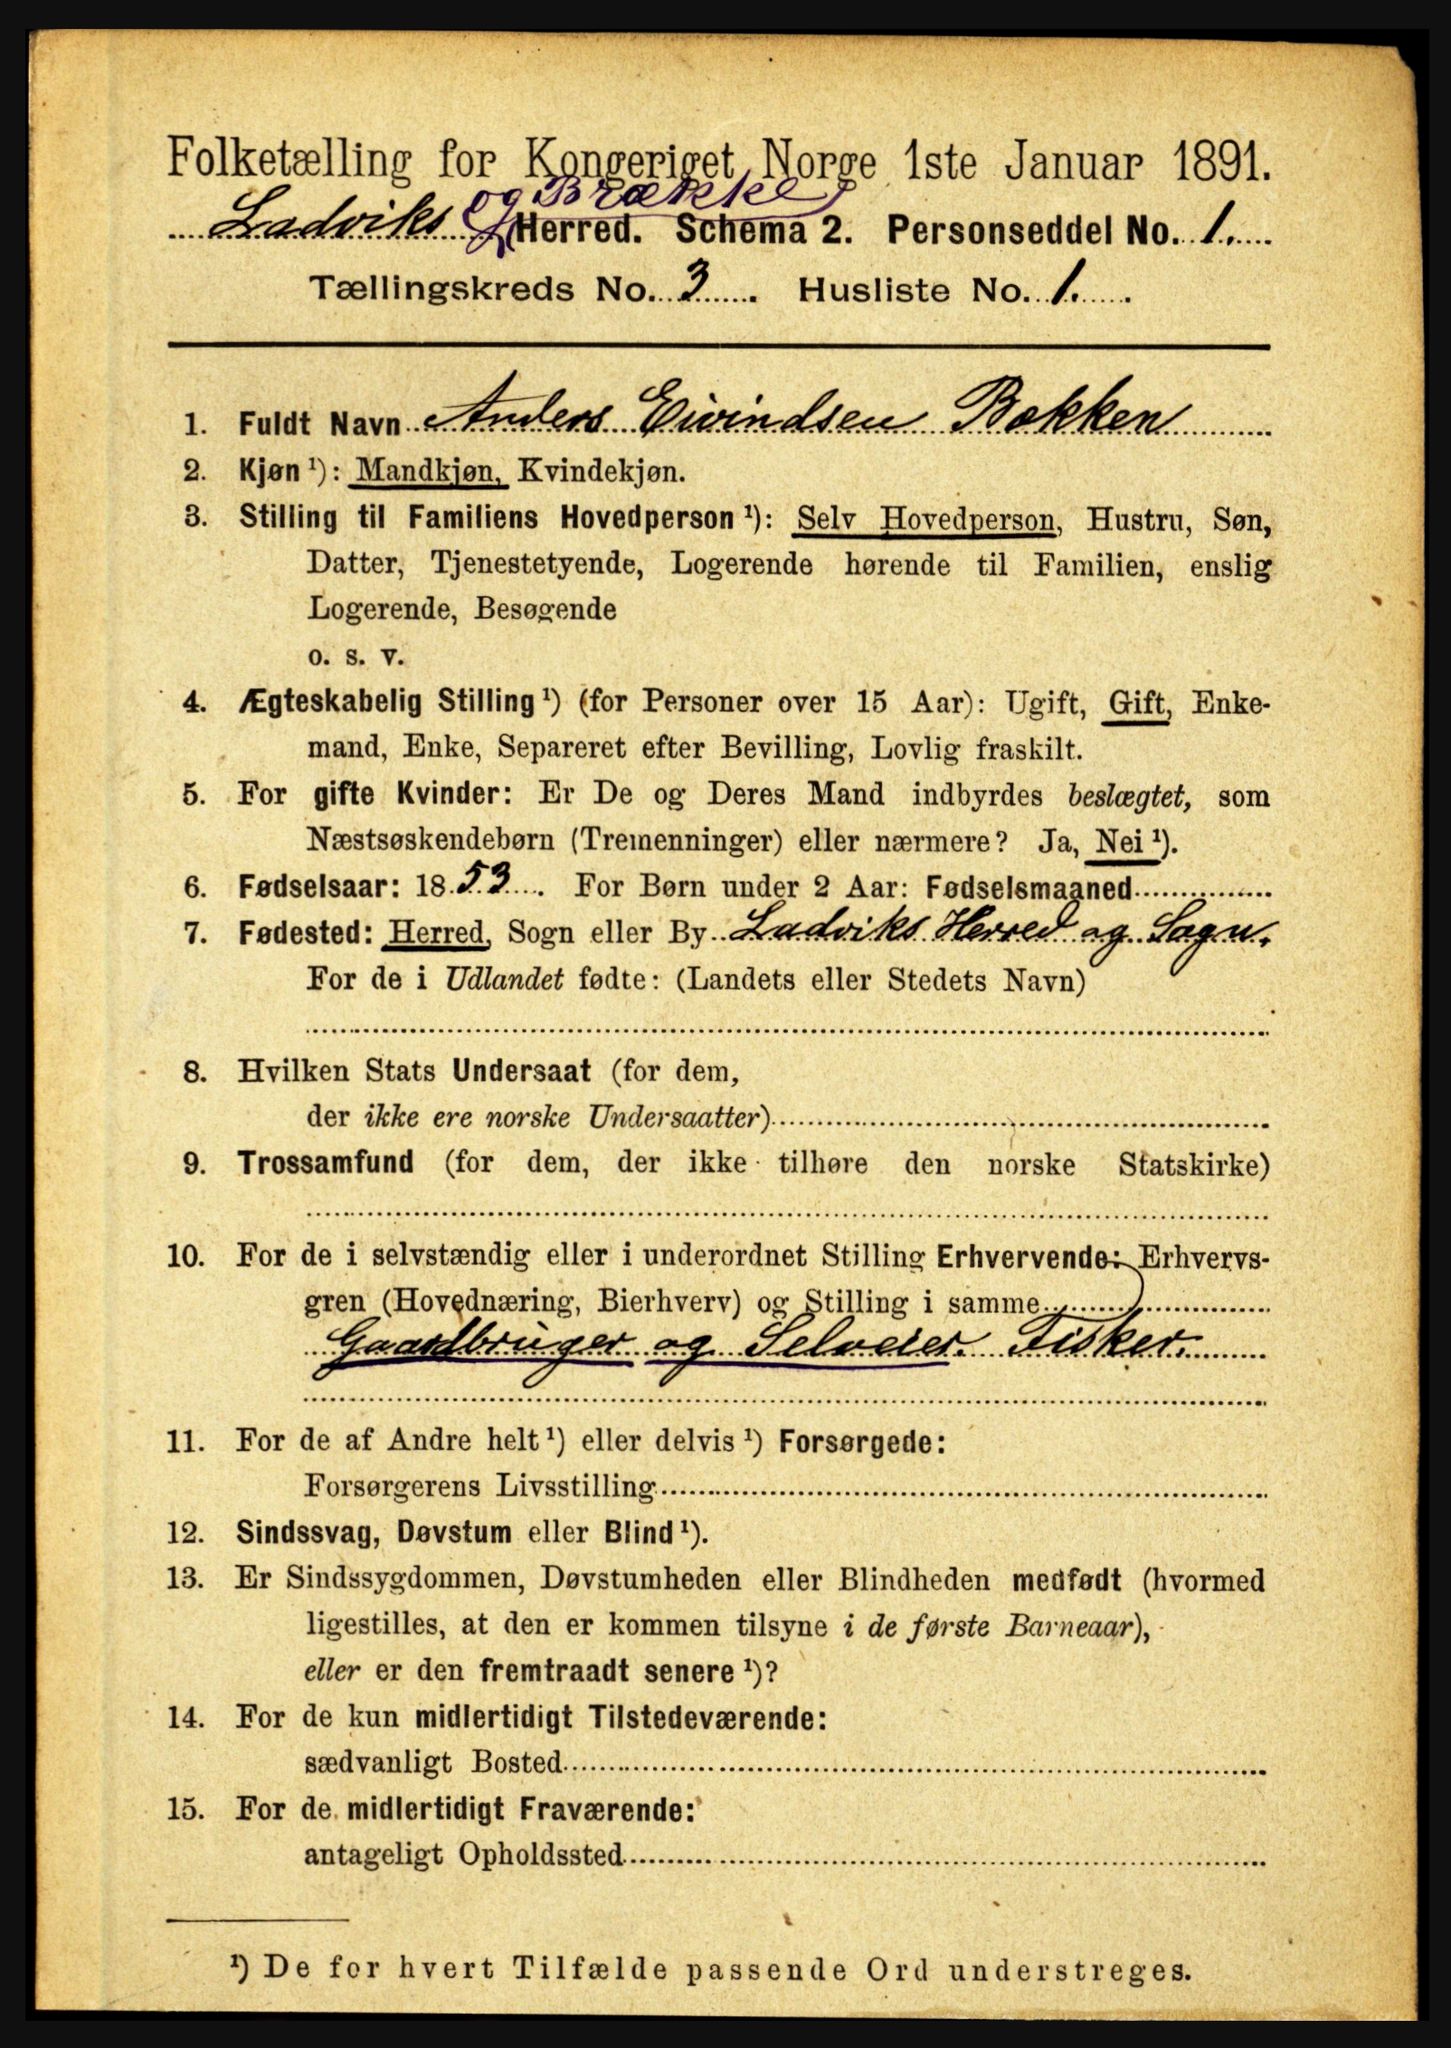 Folketælling for Kongeriget Norge 1ste Januar 1891.
og Brække
Ladviks Herred. Schema 2. Personseddel No. 1.
Tællingskreds No. 3. Husliste No. 1.
1. Fuldt Navn Anders Eivindsen Bakken
2. Kjøn ¹): Mandkjøn, Kvindekjøn.
3. Stilling til Familiens Hovedperson ¹): Selv Hovedperson, Hustru, Søn,
Datter, Tjenestetyende, Logerende hørende til Familien, enslig
Logerende, Besøgende
o. s. v.
4. Ægteskabelig Stilling ¹) (for Personer over 15 Aar): Ugift, Gift, Enke-
mand, Enke, Separeret efter Bevilling, Lovlig fraskilt.
5. For gifte Kvinder: Er De og Deres Mand indbyrdes beslægtet, som
Næstsøskendebørn (Tremenninger) eller nærmere? Ja, Nei ¹).
6. Fødselsaar: 1853. For Børn under 2 Aar: Fødselsmaaned
7. Fødested: Herred, Sogn eller By Ladviks Herred og Sogn.
For de i Udlandet fødte: (Landets eller Stedets Navn)
8. Hvilken Stats Undersaat (for dem,
der ikke ere norske Undersaatter)
9. Trossamfund (for dem, der ikke tilhøre den norske Statskirke)
10. For de i selvstændig eller i underordnet Stilling Erhvervende: Erhvervs-
gren (Hovednæring, Bierhverv) og Stilling i samme
Gaardbruger og Selveier. Fisker.
11. For de af Andre helt ¹) eller delvis ¹) Forsørgede:
Forsørgerens Livsstilling
12. Sindssvag, Døvstum eller Blind ¹).
13. Er Sindssygdommen, Døvstumheden eller Blindheden medfødt (hvormed
ligestilles, at den er kommen tilsyne i de første Barneaar),
eller er den fremtraadt senere ¹)?
14. For de kun midlertidigt Tilstedeværende:
sædvanligt Bosted
15. For de midlertidigt Fraværende:
antageligt Opholdssted
¹) De for hvert Tilfælde passende Ord understreges.